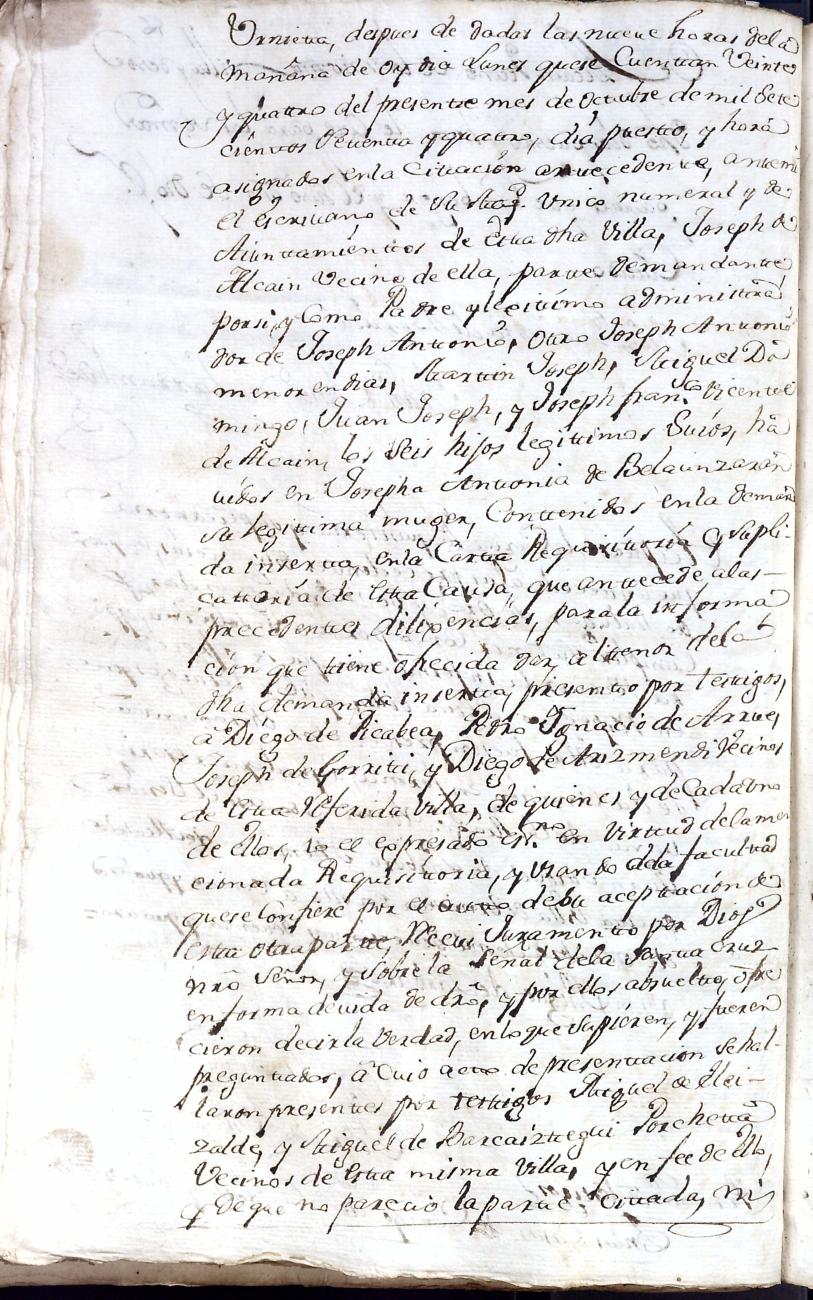 Urnieta, despues de dadas las nueve horas dela
mañana de oy dia Lunes quese Cuentan Veinte
y quattro del presente mes de Octubre de mil Sete
cientos Setenta y quatro, dia puesto, y hora
asignados enla Citacion antecedente, antemi
el Escrivano de Su Mag. Unico numeral y de
Aiuntamientos de Esta dha Villa, Joseph de
Alcain Vecino de ella, parte demandante
porsi, y Como Padre y lexitimo administra
dor de Joseph Antonio, otro Joseph Antonio
menor en dias, Martin Joseph, Miguel Do
mingo, Juan Joseph, y Joseph fran.co Vicente
de Alcain, los Seis hijos legitimos Suios, ha
vidos en Josepha Antonia de Belaunzaran
su legitima muger, Contenidos enla deman
da inserta, enla Carta Requisitoria y Supli-
cattoria de Esta Causa, que antecede alas
precedentes dilixencias, parala informa
cion que tiene ofrecida dar, altenor dela
dha demanda inserta, presento por testigos,
a Diego de Picabea, Pedro Ignacio de Arrue,
Joseph de Gorriti, y Diego de Arizmendi Vecinos
de Esta referida Villa, de quienes y de Cada uno
de Ellos, io el expresado Es.no en virtud dela men
cionada Requisitoria, y Usando dela facultad
quese Confiere por el auto de su aceptacion de
esta otra parte, Recivi Juramento por Dios
nro Señor, y Sobre la Señal dela Santa Cruz
en forma devida de dro, y por ellos absuelto, ofre
cieron decir la Verdad, enlo que Supieren, y fueren
preguntados, a Cuio acto de presentacion se hal-
laron presentes por testigos Miguel de Elei-
zalde, y Miguel de Barcaiztegui Porcheta
Vecinos de Esta misma Villa, y en fee de Ello,
y de que no parecio la parte Citada, ni